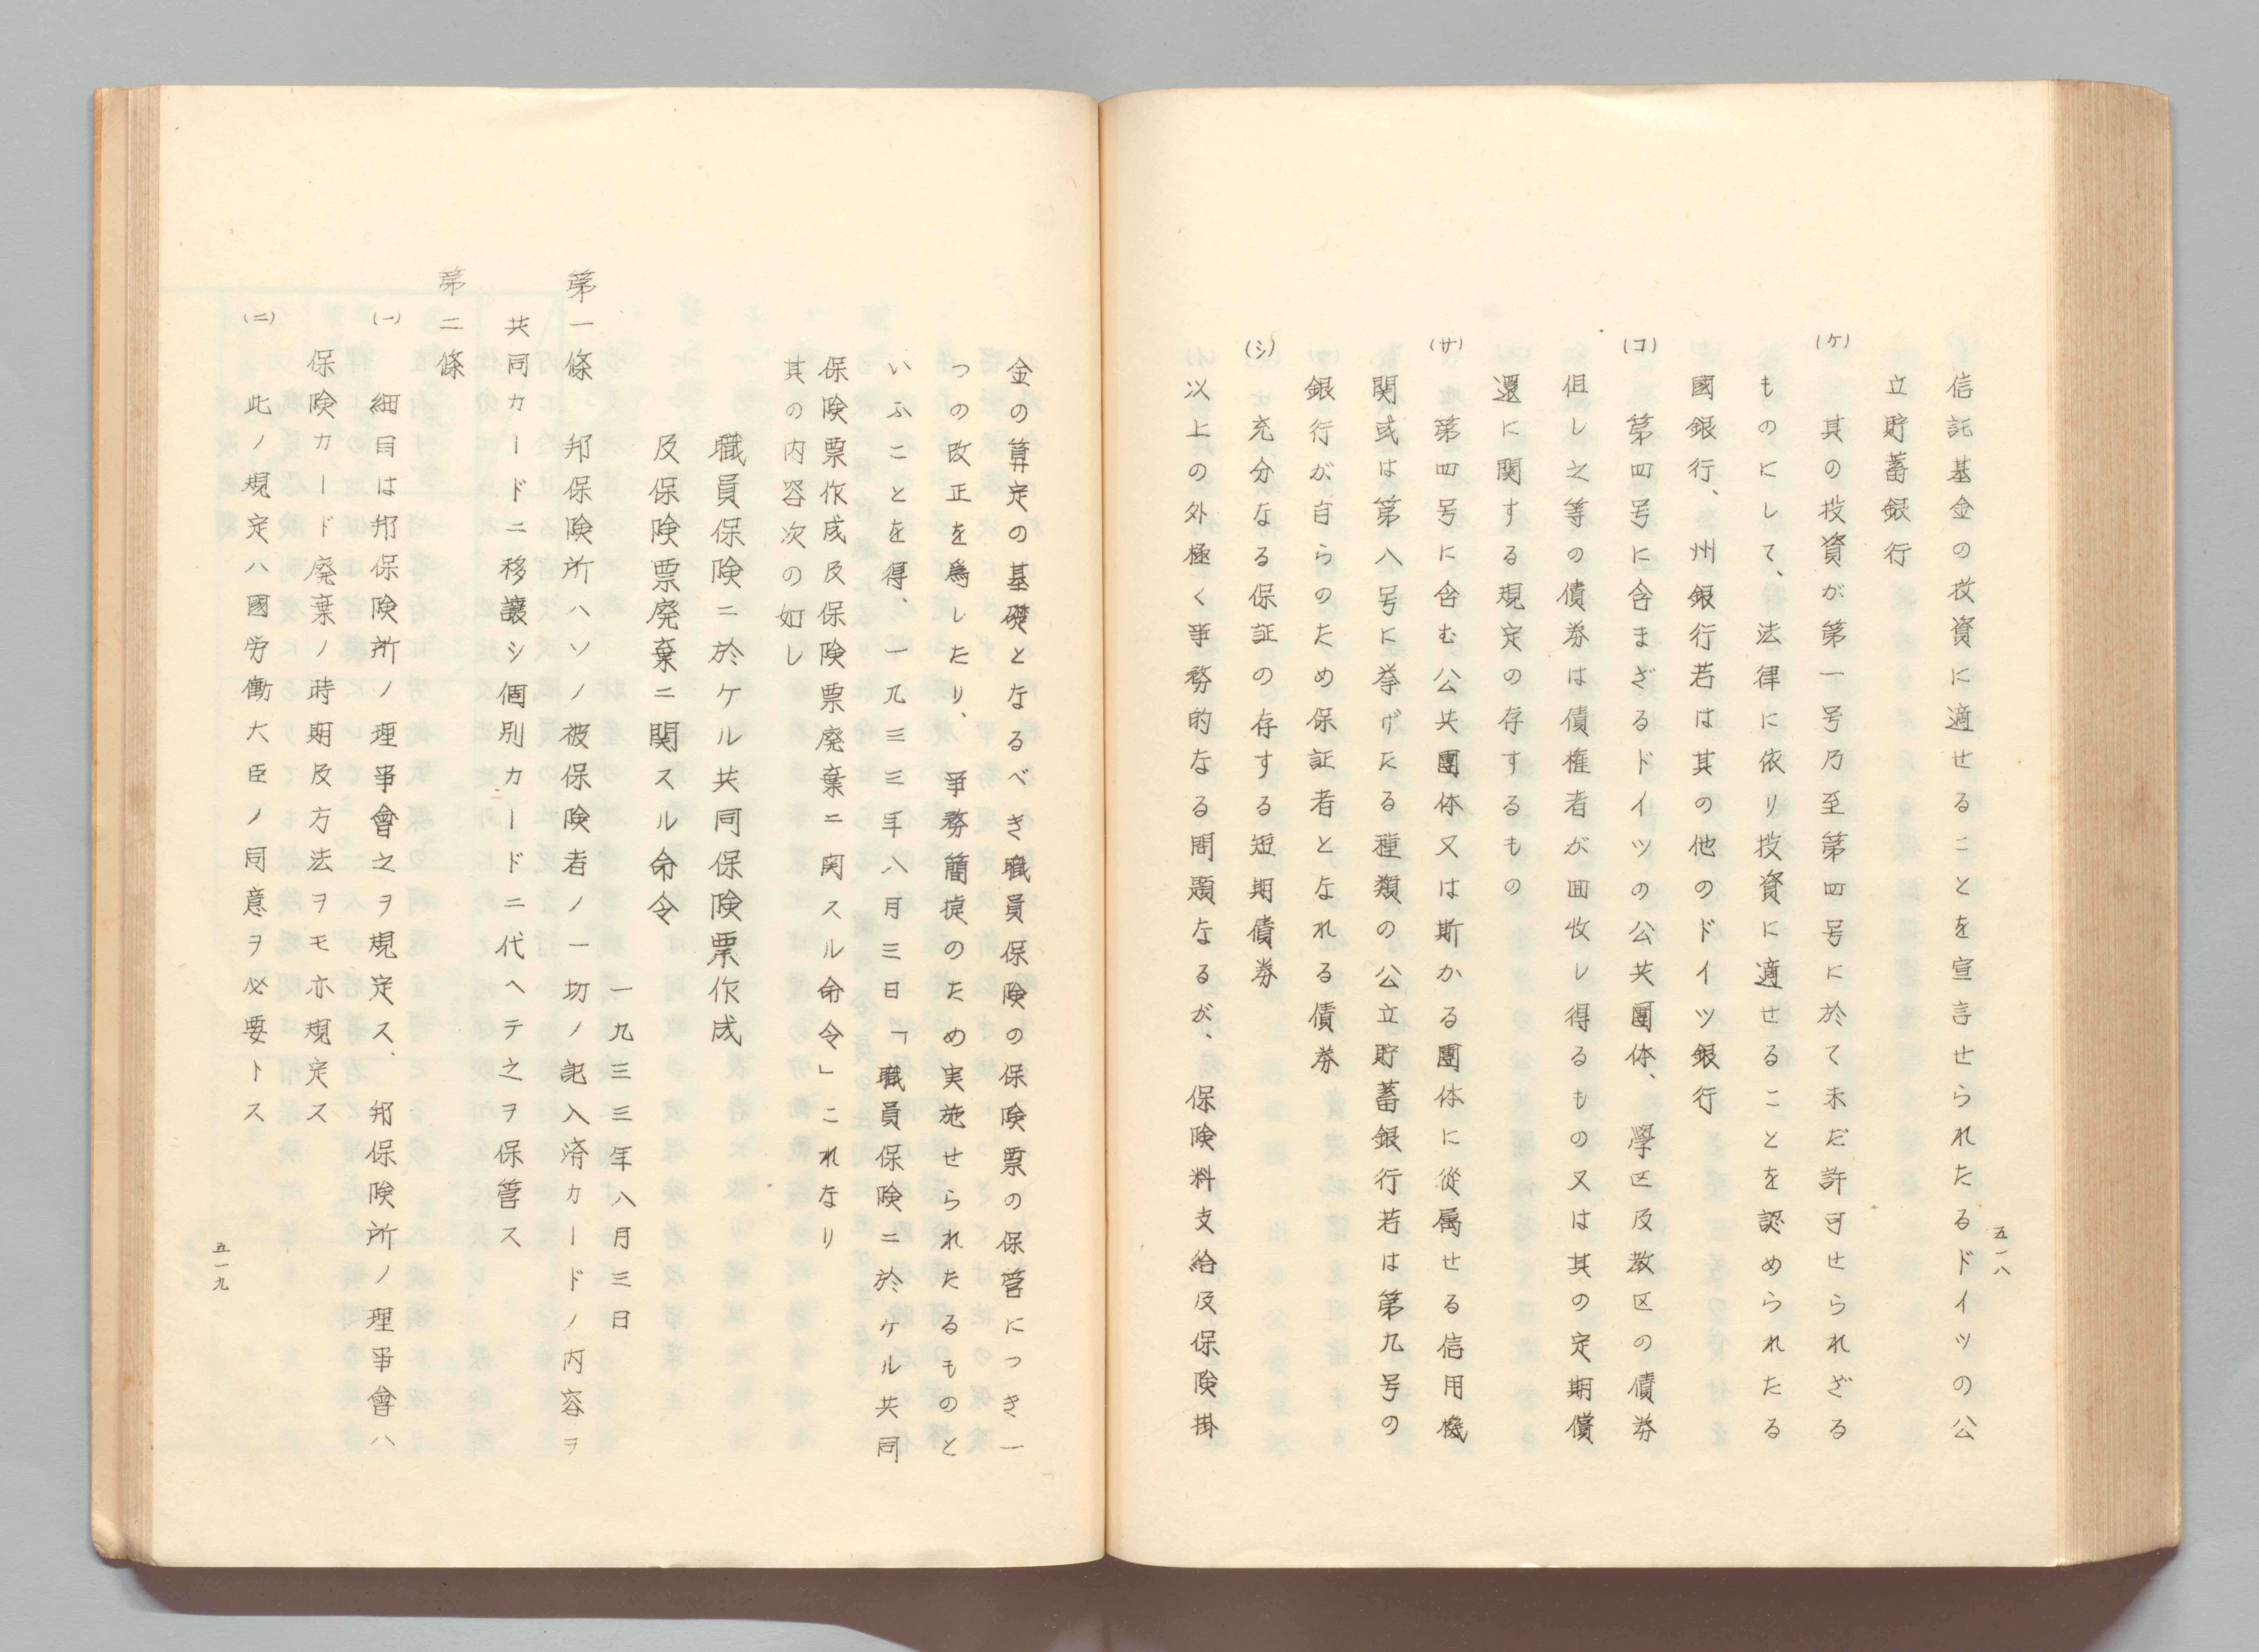 信託基金の投資に適せることを宣言せられたるドイツの公
立貯蓄銀行
(ケ) 其の投資が第一号乃至第四号に於て未だ許可せられざる
ものにして、法律に依り投資に適せることを認められたる
國銀行、州銀行若は其の他のドイツ銀行
(コ) 第四号に含まざるドイツの公共團体、學区及教区の債券
但し之等の債券は債権者が回收し得るもの又は其の定期償
還に関する規定の存するもの
(サ) 第四号に含む公共團体又は斯かる團体に從属せる信用機
関或は第八号に挙げたる種類の公立貯蓄銀行若は第九号の
銀行が自らのため保証者となれる債券
(シ) 充分なる保証の存する短期債券
以上の外極く事務的なる問題なるが、保険料支給及保険掛
五一八
金の算定の基礎となるべき職員保険の保険票の保管につき一
つの改正を爲したり、事務簡捷のため実施せられたるものと
いふことを得、一九三三年八月三日「職員保険ニ於ケル共同
保険票作成及保険票廃棄ニ関スル命令」これなり
其の内容次の如し
職員保険ニ於ケル共同保険票作成
及保険票廃棄ニ関スル命令
一九三三年八月三日
第一條 邦保険所ハソノ被保険者ノ一切ノ記入済カードノ内容ヲ
共同カードニ移譲シ個別カードニ代ヘテ之ヲ保管ス
第二條
(一) 細目は邦保険所ノ理事會之ヲ規定ス、邦保険所ノ理事會ハ
保険カード廃棄ノ時期及方法ヲモ亦規定ス
(二) 此ノ規定ハ國労働大臣ノ同意ヲ必要トス
五一九